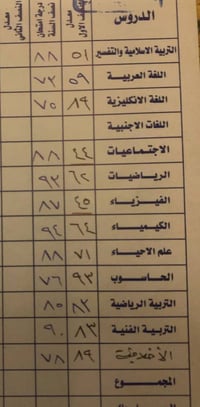 الدروس
معدل
النصف الاول
درجة امتحان
نصف السنة
معدل
النصف الثاني
التربية الاسلامية والتفسير ٥١ ٨٨
اللغة العربية ٥٩ ٧٣
اللغة الانكليزية ٨٩ ٧٥
اللغات الاجنبية
الاجتماعيات ٤٤ ٨٨
الرياضيات ٦٢ ٩٣
الفيزياء ٤٥ ٨٧
الكيمياء ٦٤ ٩٤
علم الاحياء ٧١ ٨٨
الحاسوب ٩٣ ٧٦
التربية الرياضية ٨٣ ٨٥
التربية الفنية ٨٣ ٩٠
الأخلاقية ٨٩ ٧٨
المجموع